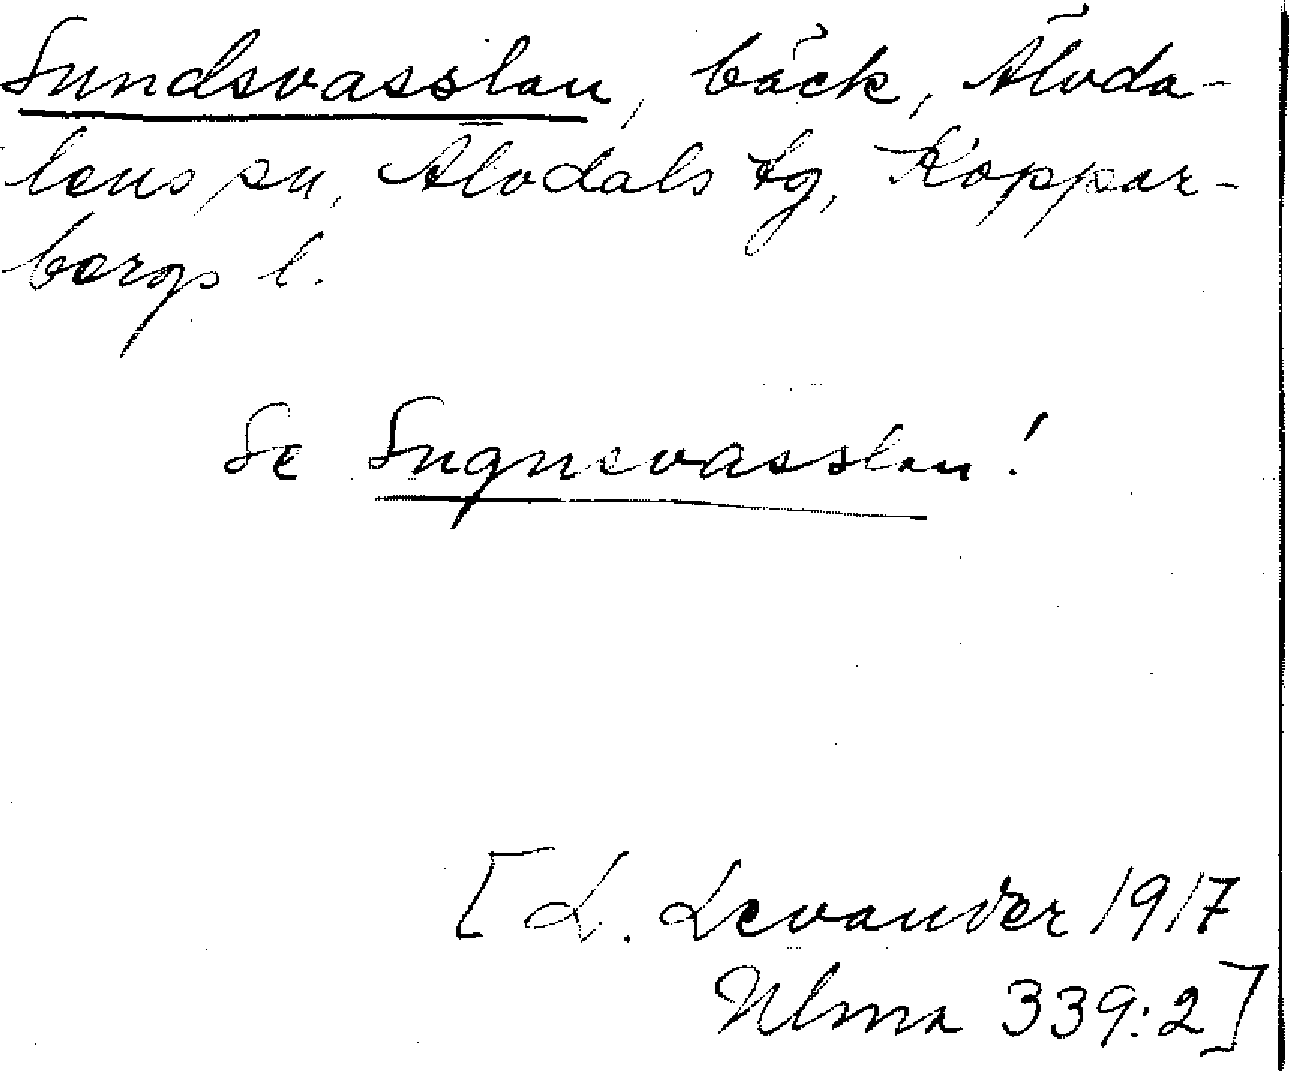 Sundsvasslan, bäck, Älvda-
lens sn, Älvdals tg, Koppar-
bergs l.
Se Sugnevasslan!
[L. Levander 1917
Ulma 339:2]